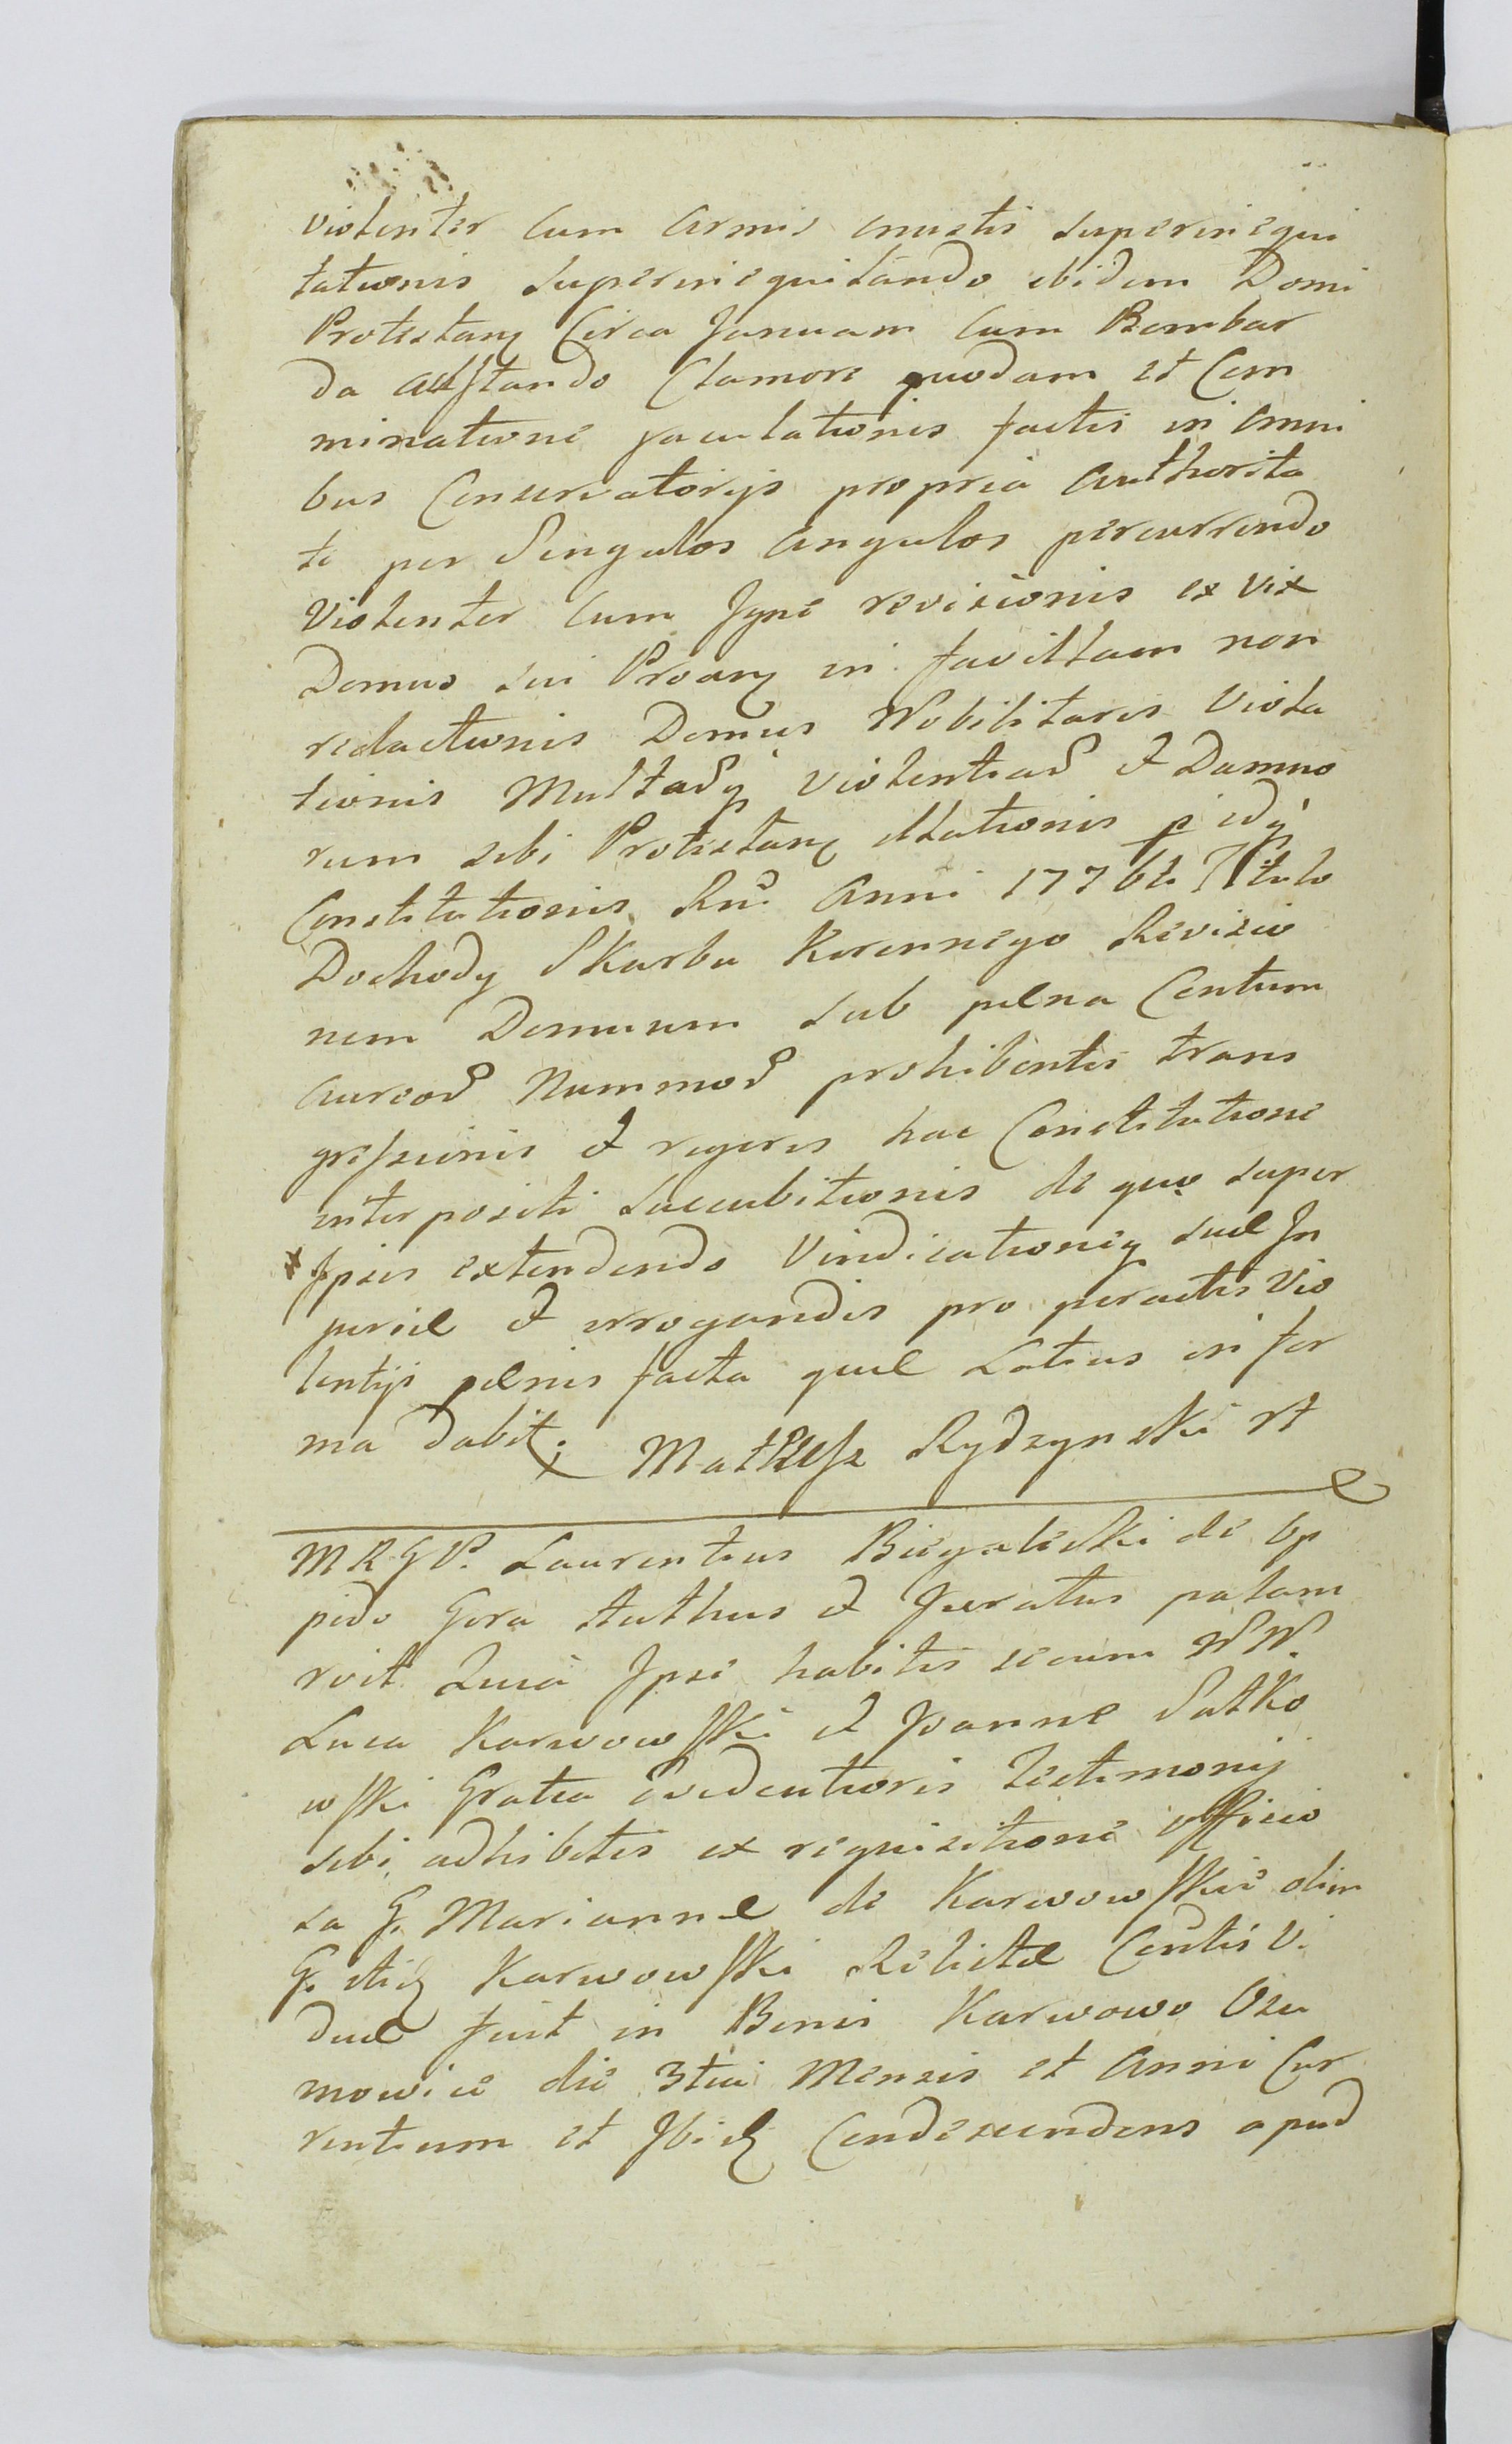 violenter cum armis onustis superinequi
tationis superinequitando ibidem Domi
Protestanς Circa Januam cum Bombar
da adstando Clamore quodam et Com
minatione jaculationis factis in omni
bus Conservatorijs propria Authorita
te per Singulos angulos percurrendo
Violenter cum Jgne revisionis ex vix
Domus sui Proanς in favillam non
redactionis Domus Nobilitaris Viola
tionis violentiar et Damno
rum sibi Protestanς illationis
Constitutionis Rni Anni 1776ti Titulo
Dochody Skarbu Koronnego Revisio
nem Domuum sub pæna Centum
aureor Nummor prohibentis trans
greſsionis et regeres hac Constitutione
interpositi Succubitionis de quo super
Jpsis extendendo Vindicationeς suæ Jn
juriæ et irrogandis pro peractis vio
lentijs pænis facta quæ Latius in for
ma dabit. Matteuſz Rydzynski
MRGP. Laurentius Biegaleski de Op
pido Gora Authus et Juratus palam
roit Quia Jpse habitis secum NN.
Luca Karwowſki et Joanne Satko
wſki Gratia evidentioris Testimonij
sibi adhibitis ex requisitione officio
sa G. Mariannæ de Karwowſkie olim
G. Karwowſki Relictæ Contis V.
duæ fuit in Bonis Karwowo Orſu
mowice die 3tia Mensis et Anni Cur
rentium et Jbidς Condescendens apud